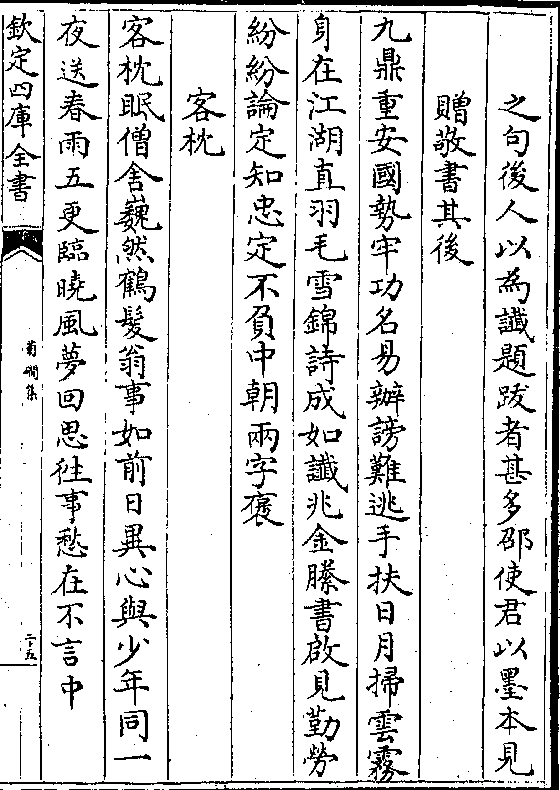 之句後人以為讖題跋者甚多邵使君以墨本見
贈敬書其後
九鼎重安國勢牢功名易辦謗難逃手扶日月掃雲霧
身在江湖直羽毛雪錦詩成如讖兆金縢書啟見勤勞
紛紛論定知忠定不負中朝兩字褒
客枕
客枕眠僧舍巍然鶴髮翁事如前日異心與少年同一
夜送春雨五更臨曉風夢回思徃事愁在不言中
欽定四庫全書
菊磵集
二十五